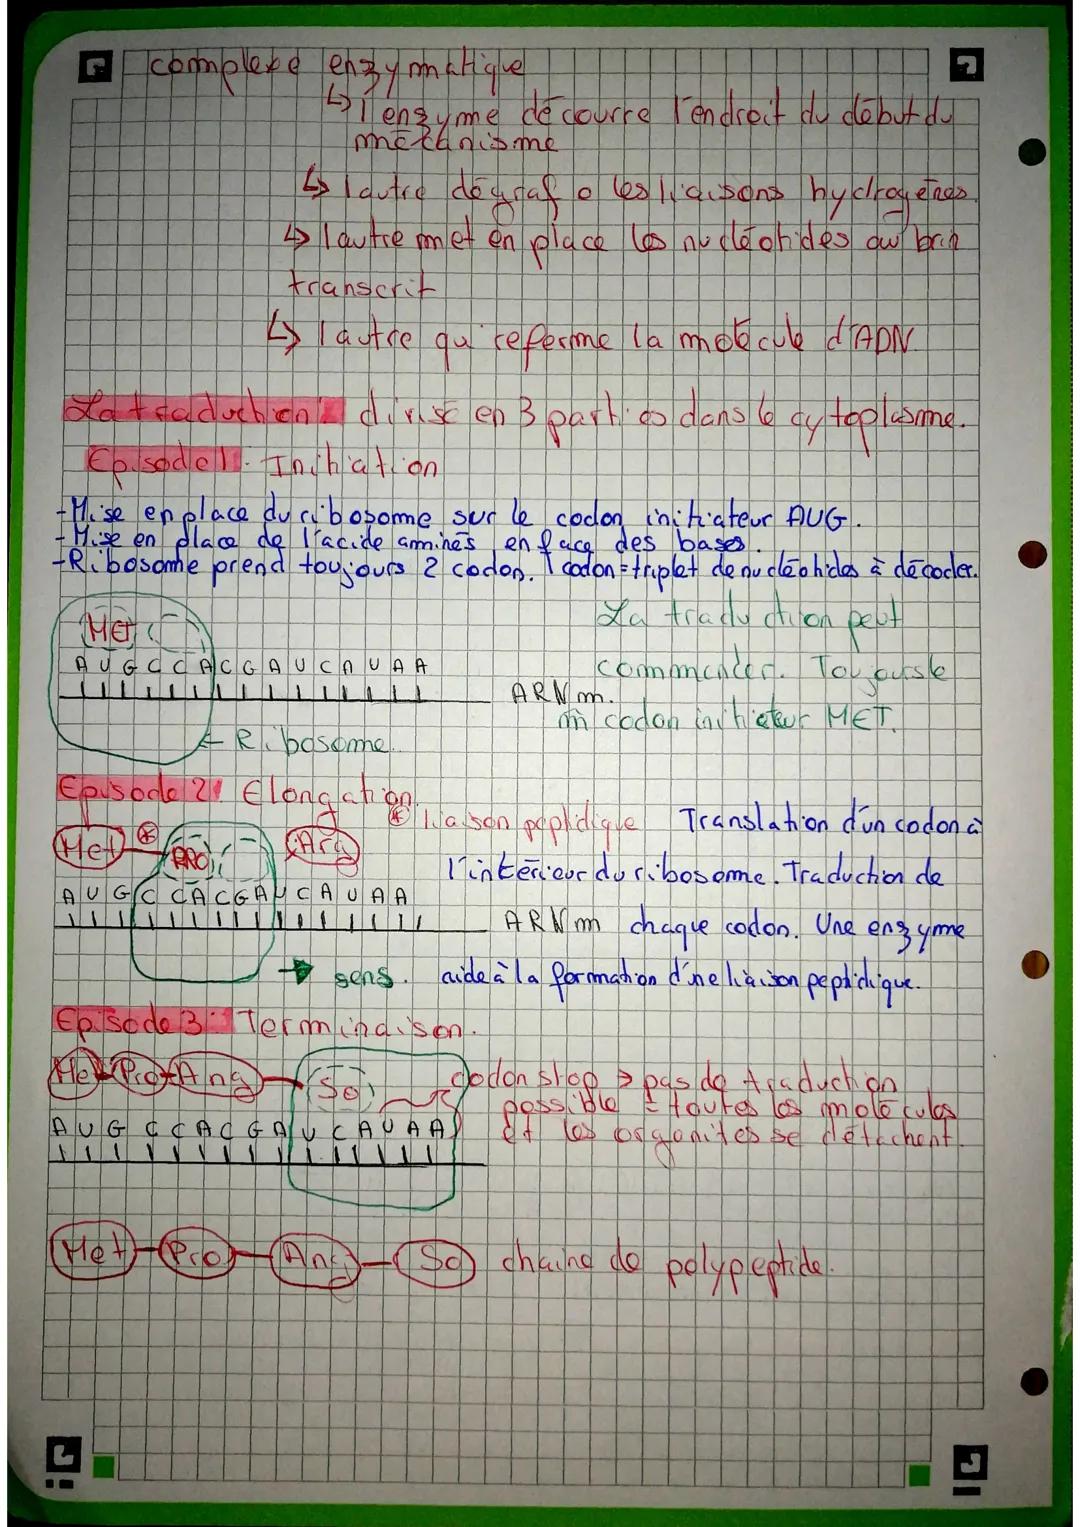 complexe enzymatique
↳ l'enzyme découvre l'endroit du début du
mécanisme
↳ l'autre dégrafe les liaisons hydrogènes
↳ l'autre met en place les nucléotides au brin
transcrit
↳ l'autre qui referme la molécule d'ADN.
La traduction : divisé en 3 parties dans le cytoplasme.
Episode 1 : Initiation
- Mise en place du ribosome sur le codon initiateur AUG.
- Mise en place de l'acide aminés en face des bases.
- Ribosome prend toujours 2 codon. 1 codon = triplet de nucléotides à décoder.
MET
La traduction peut
A U G C C A C G A U C A U A A
commencer. Toujours le
ARNm.
m codon initiateur MET.
← Ribosome.
Episode 2 : Elongation.
⊛ liaison peptidique
Translation d'un codon à
Met ⊛ PRO Arg
l'intérieur du ribosome. Traduction de
A U G C C A C G A U C A U A A
ARNm
chaque codon. Une enzyme
→ sens.
aide à la formation d'une liaison peptidique.
Episode 3 : Terminaison.
Met Pro Ang So
codon stop → pas de traduction
possible = toutes les molécules
A U G C C A C G A U C A U A A
et les organites se détachent.
Met Pro Ang So chaine de polypeptide.